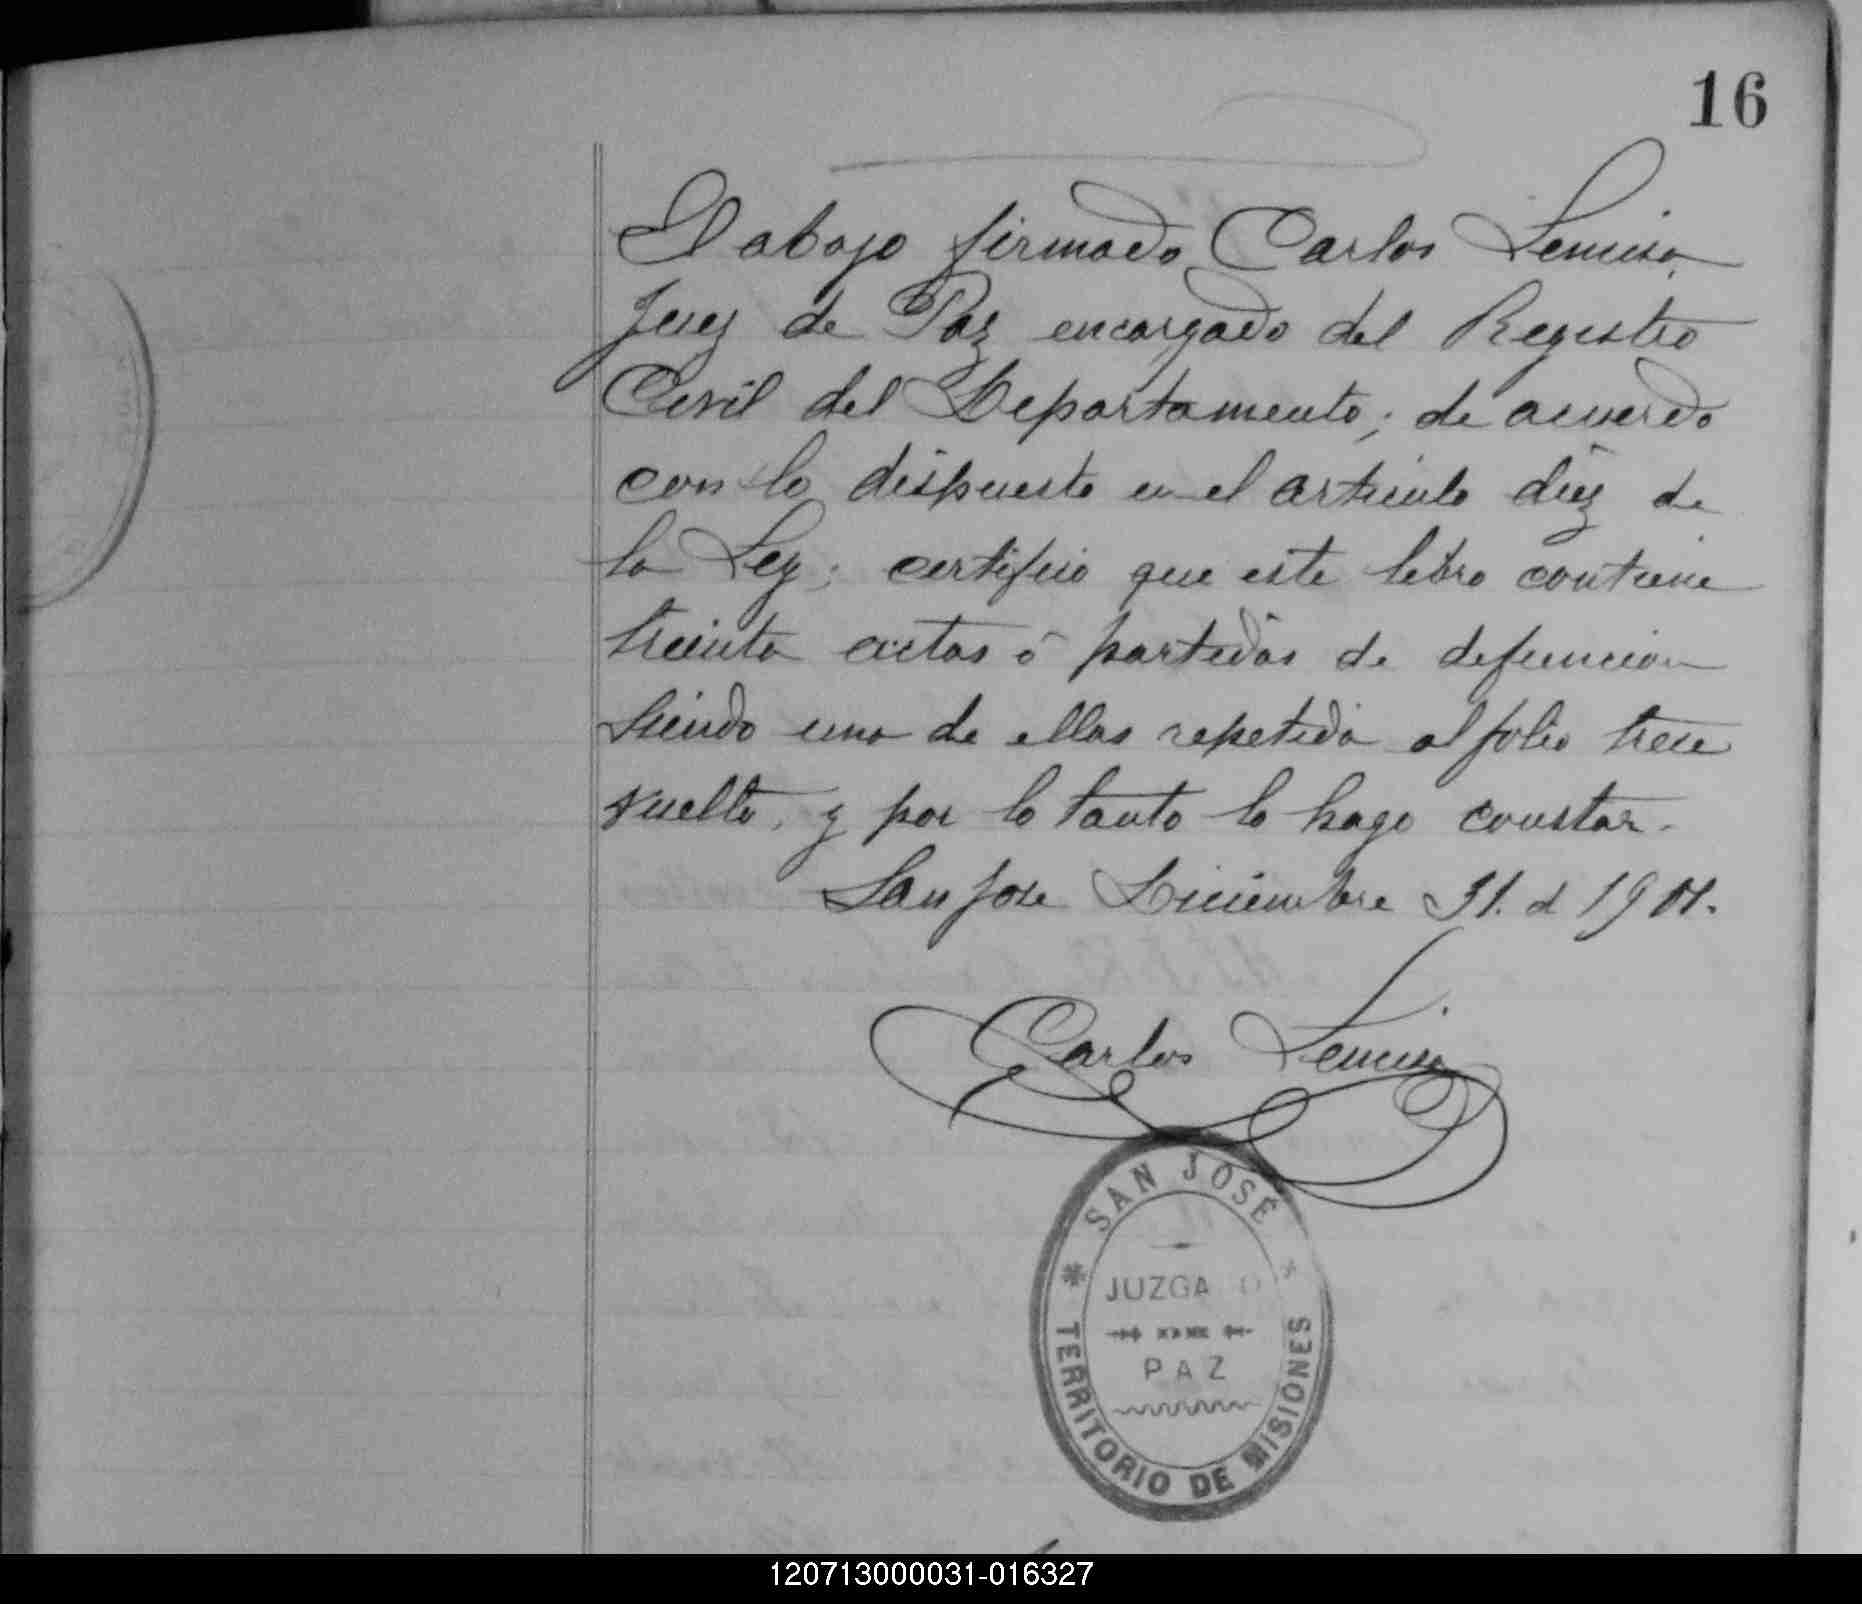 16
El abajo firmado, Carlos
Juez de Paz encargado del Registro
Civil del Departamento; de acuerdo
con lo dispuesto en el articulo diez de
la Ley; certifico que este libro contiene
treinta actas ó partidas de defuncion
siendo una de ellas repetida al folio trece
vuelto, y por lo tanto lo hago constar.
San Jose Diciembre 31. d 1901.
Carlos
SAN JOSÉ
JUZGA O
PAZ
TERRITORIO DE MISIONES
120713000031-016327